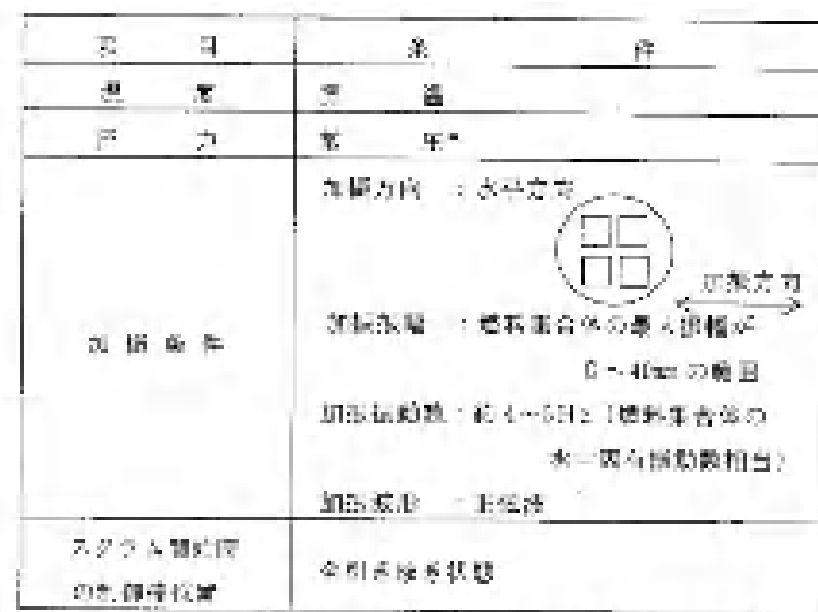 項目 条件
温度 室温
圧力 常圧*
加振方向 : 水平方向
加振方向
加振条件
加振振幅 : 燃料集合体の最大振幅が
0~40mmの範囲
加振振動数 : 約4~5Hz (燃料集合体の
水中固有振動数相当)
加振波形 : 正弦波
スクラム開始時
の制御棒位置
全引き抜き状態